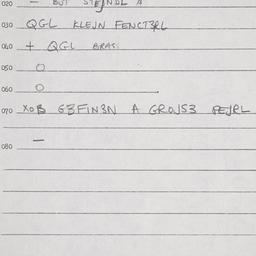 020 — BUT STEJNDL A
030 QGL KLEJN FENCT3RL
040 + QGL BRAS.
050 O
060 O
070 XOB G3FIN3N A GROJS3 FEJRL
080 —